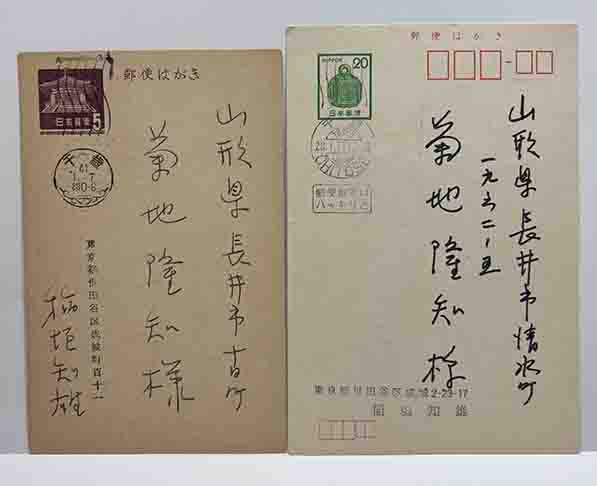 郵便はがき
日本郵便
5
千歳
41
山形県長井市
菊地隆知様
東京都世田谷区成城町百十一
稲垣知雄
郵便はがき
NIPPON
20
日本郵便
CHITOSE
郵便番号は
ハッキリと
山形県長井市清水町
一九六二ー五
菊地隆知様
東京都世田谷区成城2-23-17
稲垣知雄